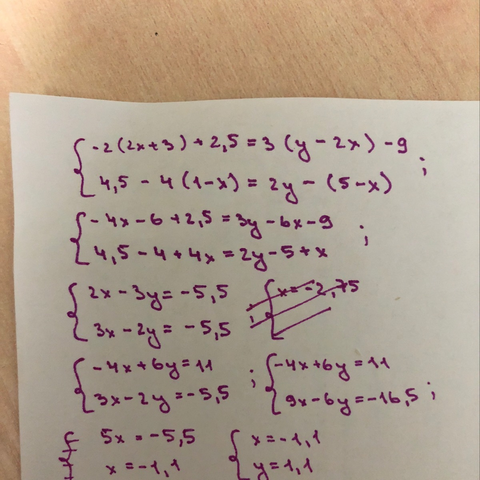 -2(2x+3)+2,5=3(y-2x)-9
4,5-4(1-x)=2y-(5-x) ;
-4x-6+2,5=3y-6x-9
4,5-4+4x=2y-5+x ;
2x-3y=-5,5
3x-2y=-5,5 ; x=-2,75
-4x+6y=11 ; -4x+6y=11
3x-2y=-5,5 9x-6y=-16,5 ;
5x=-5,5 x=-1,1
x=-1,1 y=1,1